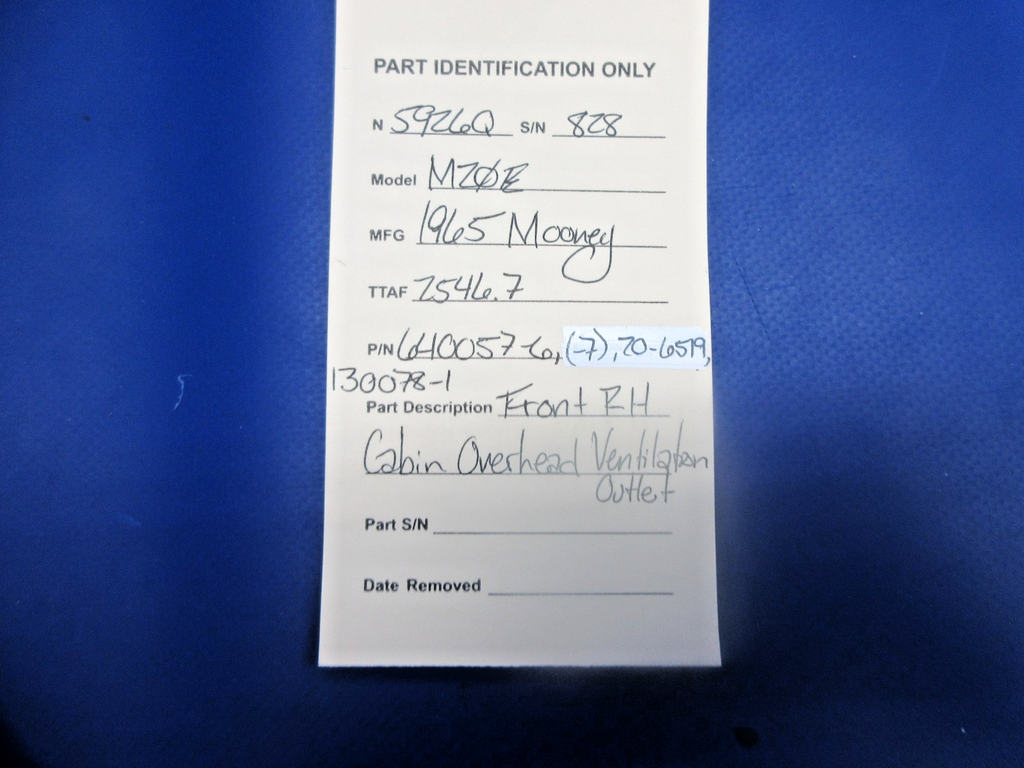 PART IDENTIFICATION ONLY
N 5926Q S/N 828
Model M20E
MFG 1965 Mooney
TTAF 2546.7
P/N 640057-6, (-7), 20-6519,
130078-1
Part Description Front RH
Cabin Overhead Ventilation
Outlet
Part S/N
Date Removed